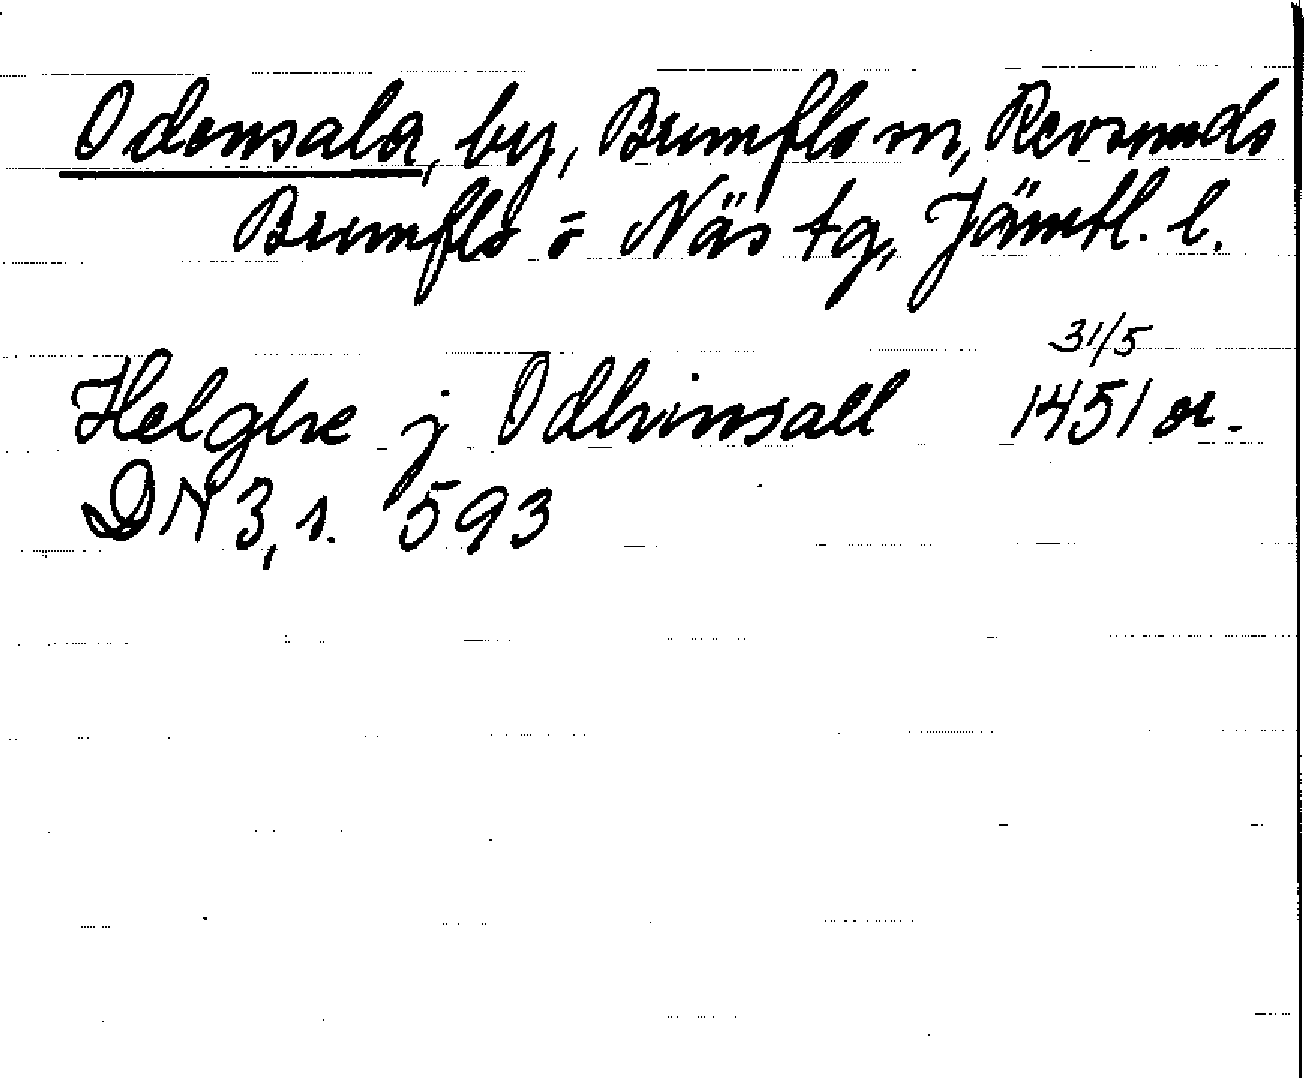 Odensala, by, Brunflo sn, Revsunds
Brunflo o Näs tg, Jämtl. l.
31/5
Helghe j Odhinsall 1451 or.
DN 3, s. 593